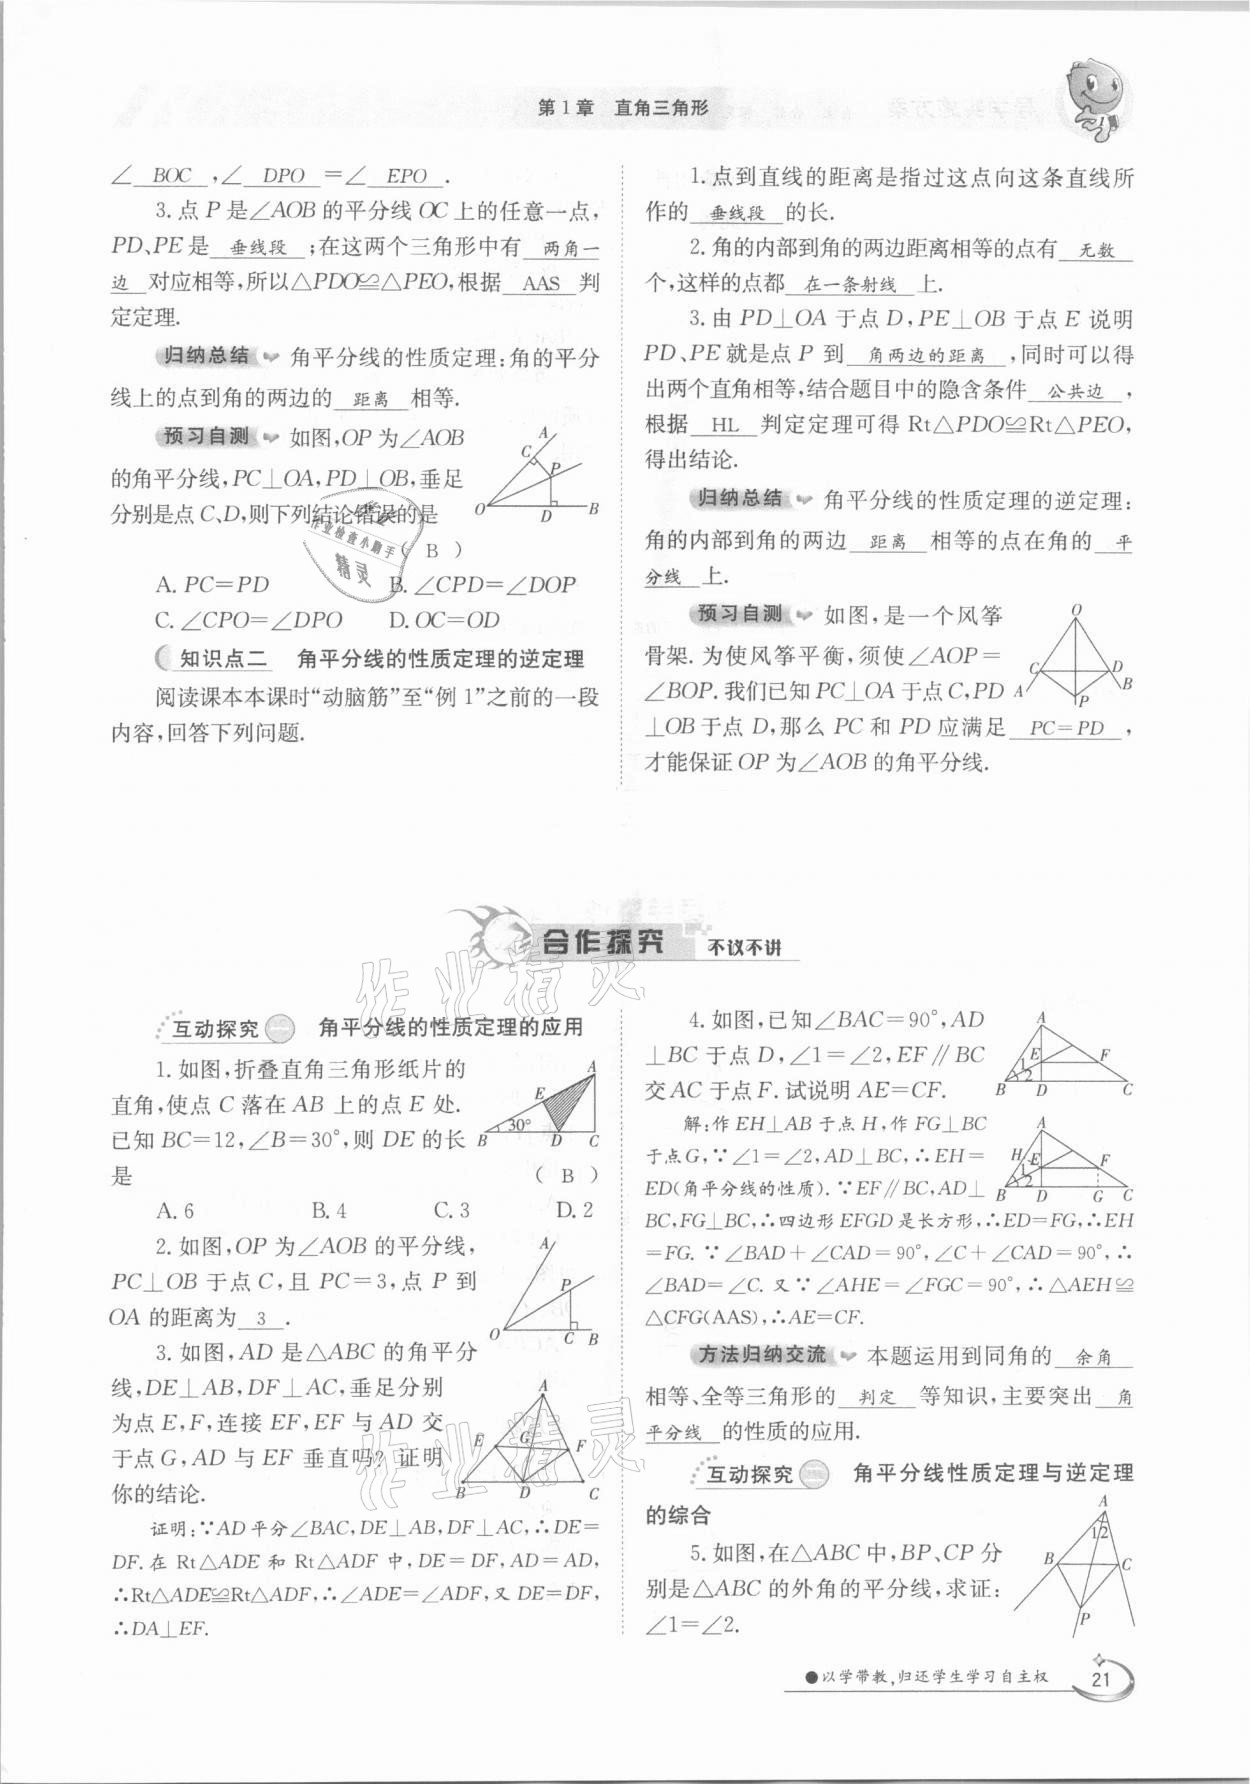 第1章 直角三角形
∠ BOC ,∠ DPO =∠ EPO .
3.点P是∠AOB的平分线OC上的任意一点,
PD、PE是 垂线段 ;在这两个三角形中有 两角一
边 对应相等,所以△PDO≌△PEO,根据 AAS 判
定定理.
归纳总结 角平分线的性质定理:角的平分
线上的点到角的两边的 距离 相等.
预习自测 如图,OP为∠AOB
的角平分线,PC⊥OA,PD⊥OB,垂足
分别是点C、D,则下列结论错误的是
( B )
A.PC=PD B.∠CPD=∠DOP
C.∠CPO=∠DPO D.OC=OD
A
C
P
O
D
B
知识点二 角平分线的性质定理的逆定理
阅读课本本课时“动脑筋”至“例1”之前的一段
内容,回答下列问题.
1.点到直线的距离是指过这点向这条直线所
作的 垂线段 的长.
2.角的内部到角的两边距离相等的点有 无数
个,这样的点都 在一条射线 上.
3.由PD⊥OA于点D,PE⊥OB于点E说明
PD、PE就是点P到 角两边的距离 ,同时可以得
出两个直角相等,结合题目中的隐含条件 公共边 ,
根据 HL 判定定理可得Rt△PDO≌Rt△PEO,
得出结论.
归纳总结 角平分线的性质定理的逆定理:
角的内部到角的两边 距离 相等的点在角的 平
分线 上.
预习自测 如图,是一个风筝
骨架.为使风筝平衡,须使∠AOP=
∠BOP.我们已知PC⊥OA于点C,PD
⊥OB于点D,那么PC和PD应满足 PC=PD ,
才能保证OP为∠AOB的角平分线.
O
C
D
A
P
B
合作探究 不议不讲
互动探究一 角平分线的性质定理的应用
1.如图,折叠直角三角形纸片的
直角,使点C落在AB上的点E处.
已知BC=12,∠B=30°,则DE的长
是 ( B )
A.6 B.4 C.3 D.2
A
E
30°
B
D
C
2.如图,OP为∠AOB的平分线,
PC⊥OB于点C,且PC=3,点P到
OA的距离为 3 .
A
P
O
C
B
3.如图,AD是△ABC的角平分
线,DE⊥AB,DF⊥AC,垂足分别
为点E,F,连接EF,EF与AD交
于点G,AD与EF垂直吗?证明
你的结论.
A
E
G
F
B
D
C
证明:∵AD平分∠BAC,DE⊥AB,DF⊥AC,∴DE=
DF.在Rt△ADE和Rt△ADF中,DE=DF,AD=AD,
∴Rt△ADE≌Rt△ADF,∴∠ADE=∠ADF,又DE=DF,
∴DA⊥EF.
4.如图,已知∠BAC=90°,AD
⊥BC于点D,∠1=∠2,EF∥BC
交AC于点F.试说明AE=CF.
A
E
F
1
2
B
D
C
解:作EH⊥AB于点H,作FG⊥BC
于点G,∵∠1=∠2,AD⊥BC,∴EH=
ED(角平分线的性质).∵EF∥BC,AD⊥
BC,FG⊥BC,∴四边形EFGD是长方形,∴ED=FG,∴EH
=FG.∵∠BAD+∠CAD=90°,∠C+∠CAD=90°,∴
∠BAD=∠C.又∵∠AHE=∠FGC=90°,∴△AEH≌
△CFG(AAS),∴AE=CF.
A
H
E
F
1
2
B
D
G
C
方法归纳交流 本题运用到同角的 余角
相等、全等三角形的 判定 等知识,主要突出 角
平分线 的性质的应用.
互动探究二 角平分线性质定理与逆定理
的综合
5.如图,在△ABC中,BP、CP分
别是△ABC的外角的平分线,求证:
∠1=∠2.
A
12
B
C
P
●以学带教,归还学生学习自主权
21
作业检查小助手
精灵
作业精灵
作业精灵